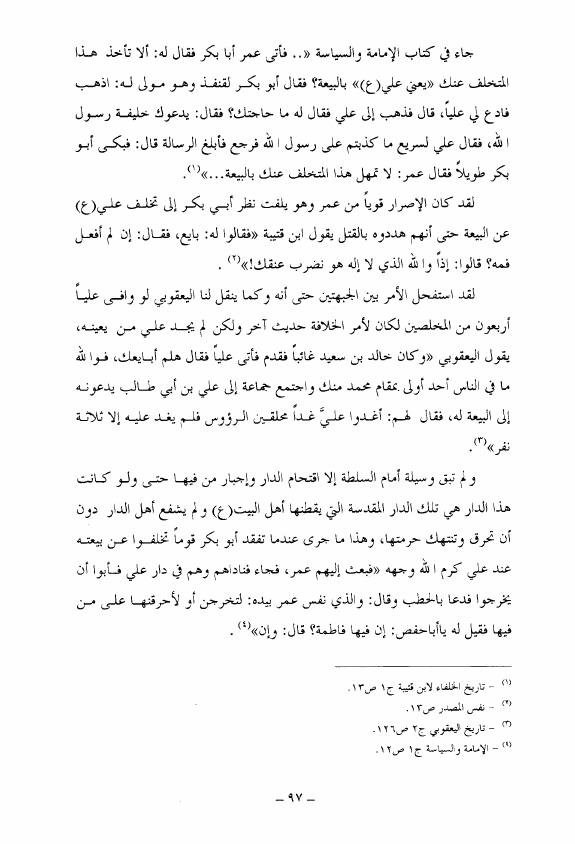 جاء في كتاب الإمامة والسياسة «.. فأتى عمر أبا بكر فقال له: ألا تأخذ هذا
المتخلف عنك «يعني علي(ع)» بالبيعة؟ فقال أبو بكر لقنفذ وهو مولى له: اذهب
فادع لي علياً، قال فذهب إلى علي فقال له ما حاجتك؟ فقال: يدعوك خليفة رسول
الله، فقال علي لسريع ما كذبتم على رسول الله فرجع فأبلغ الرسالة قال: فبكى أبو
بكر طويلاً فقال عمر: لا تمهل هذا المتخلف عنك بالبيعة...»(١).
لقد كان الإصرار قوياً من عمر وهو يلفت نظر أبي بكر إلى تخلف علي(ع)
عن البيعة حتى أنهم هددوه بالقتل يقول ابن قتيبة «فقالوا له: بايع، فقال: إن لم أفعل
فمه؟ قالوا: إذاً والله الذي لا إله هو نضرب عنقك!»(٢) .
لقد استفحل الأمر بين الجبهتين حتى أنه وكما ينقل لنا اليعقوبي لو وافى علياً
أربعون من المخلصين لكان لأمر الخلافة حديث آخر ولكن لم يجد علي من يعينه،
يقول اليعقوبي «وكان خالد بن سعيد غائباً فقدم فأتى علياً فقال هلم أبايعك، فوالله
ما في الناس أحد أولى بمقام محمد منك واجتمع جماعة إلى علي بن أبي طالب يدعونه
إلى البيعة له، فقال لهم: أغدوا عليَّ غداً محلقين الرؤوس فلم يغد عليه إلا ثلاثة
نفر»(٣).
و لم تبق وسيلة أمام السلطة إلا اقتحام الدار وإجبار من فيها حتى ولو كانت
هذا الدار هي تلك الدار المقدسة التي يقطنها أهل البيت(ع) و لم يشفع أهل الدار دون
أن تحرق وتنتهك حرمتها، وهذا ما جرى عندما تفقد أبو بكر قوماً تخلفوا عن بيعته
عند علي كرم الله وجهه «فبعث إليهم عمر، فجاء فناداهم وهم في دار علي فأبوا أن
يخرجوا فدعا بالحطب وقال: والذي نفس عمر بيده: لتخرجن أو لأحرقنها على من
فيها فقيل له ياأباحفص: إن فيها فاطمة؟ قال: وإن»(٤) .
(١) – تاريخ الخلفاء لابن قتيبة ج١ ص١٣.
(٢) – نفس المصدر ص١٣.
(٣) – تاريخ اليعقوبي ج٢ ص١٢٦.
(٤) – الإمامة والسياسة ج١ ص١٢.
– ٩٧ –